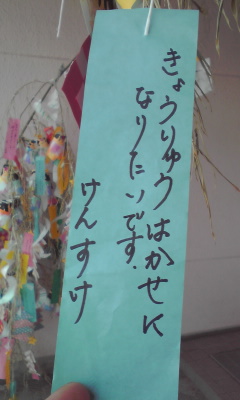 きょうりゅうはかせに
なりたいです.
けんすけ